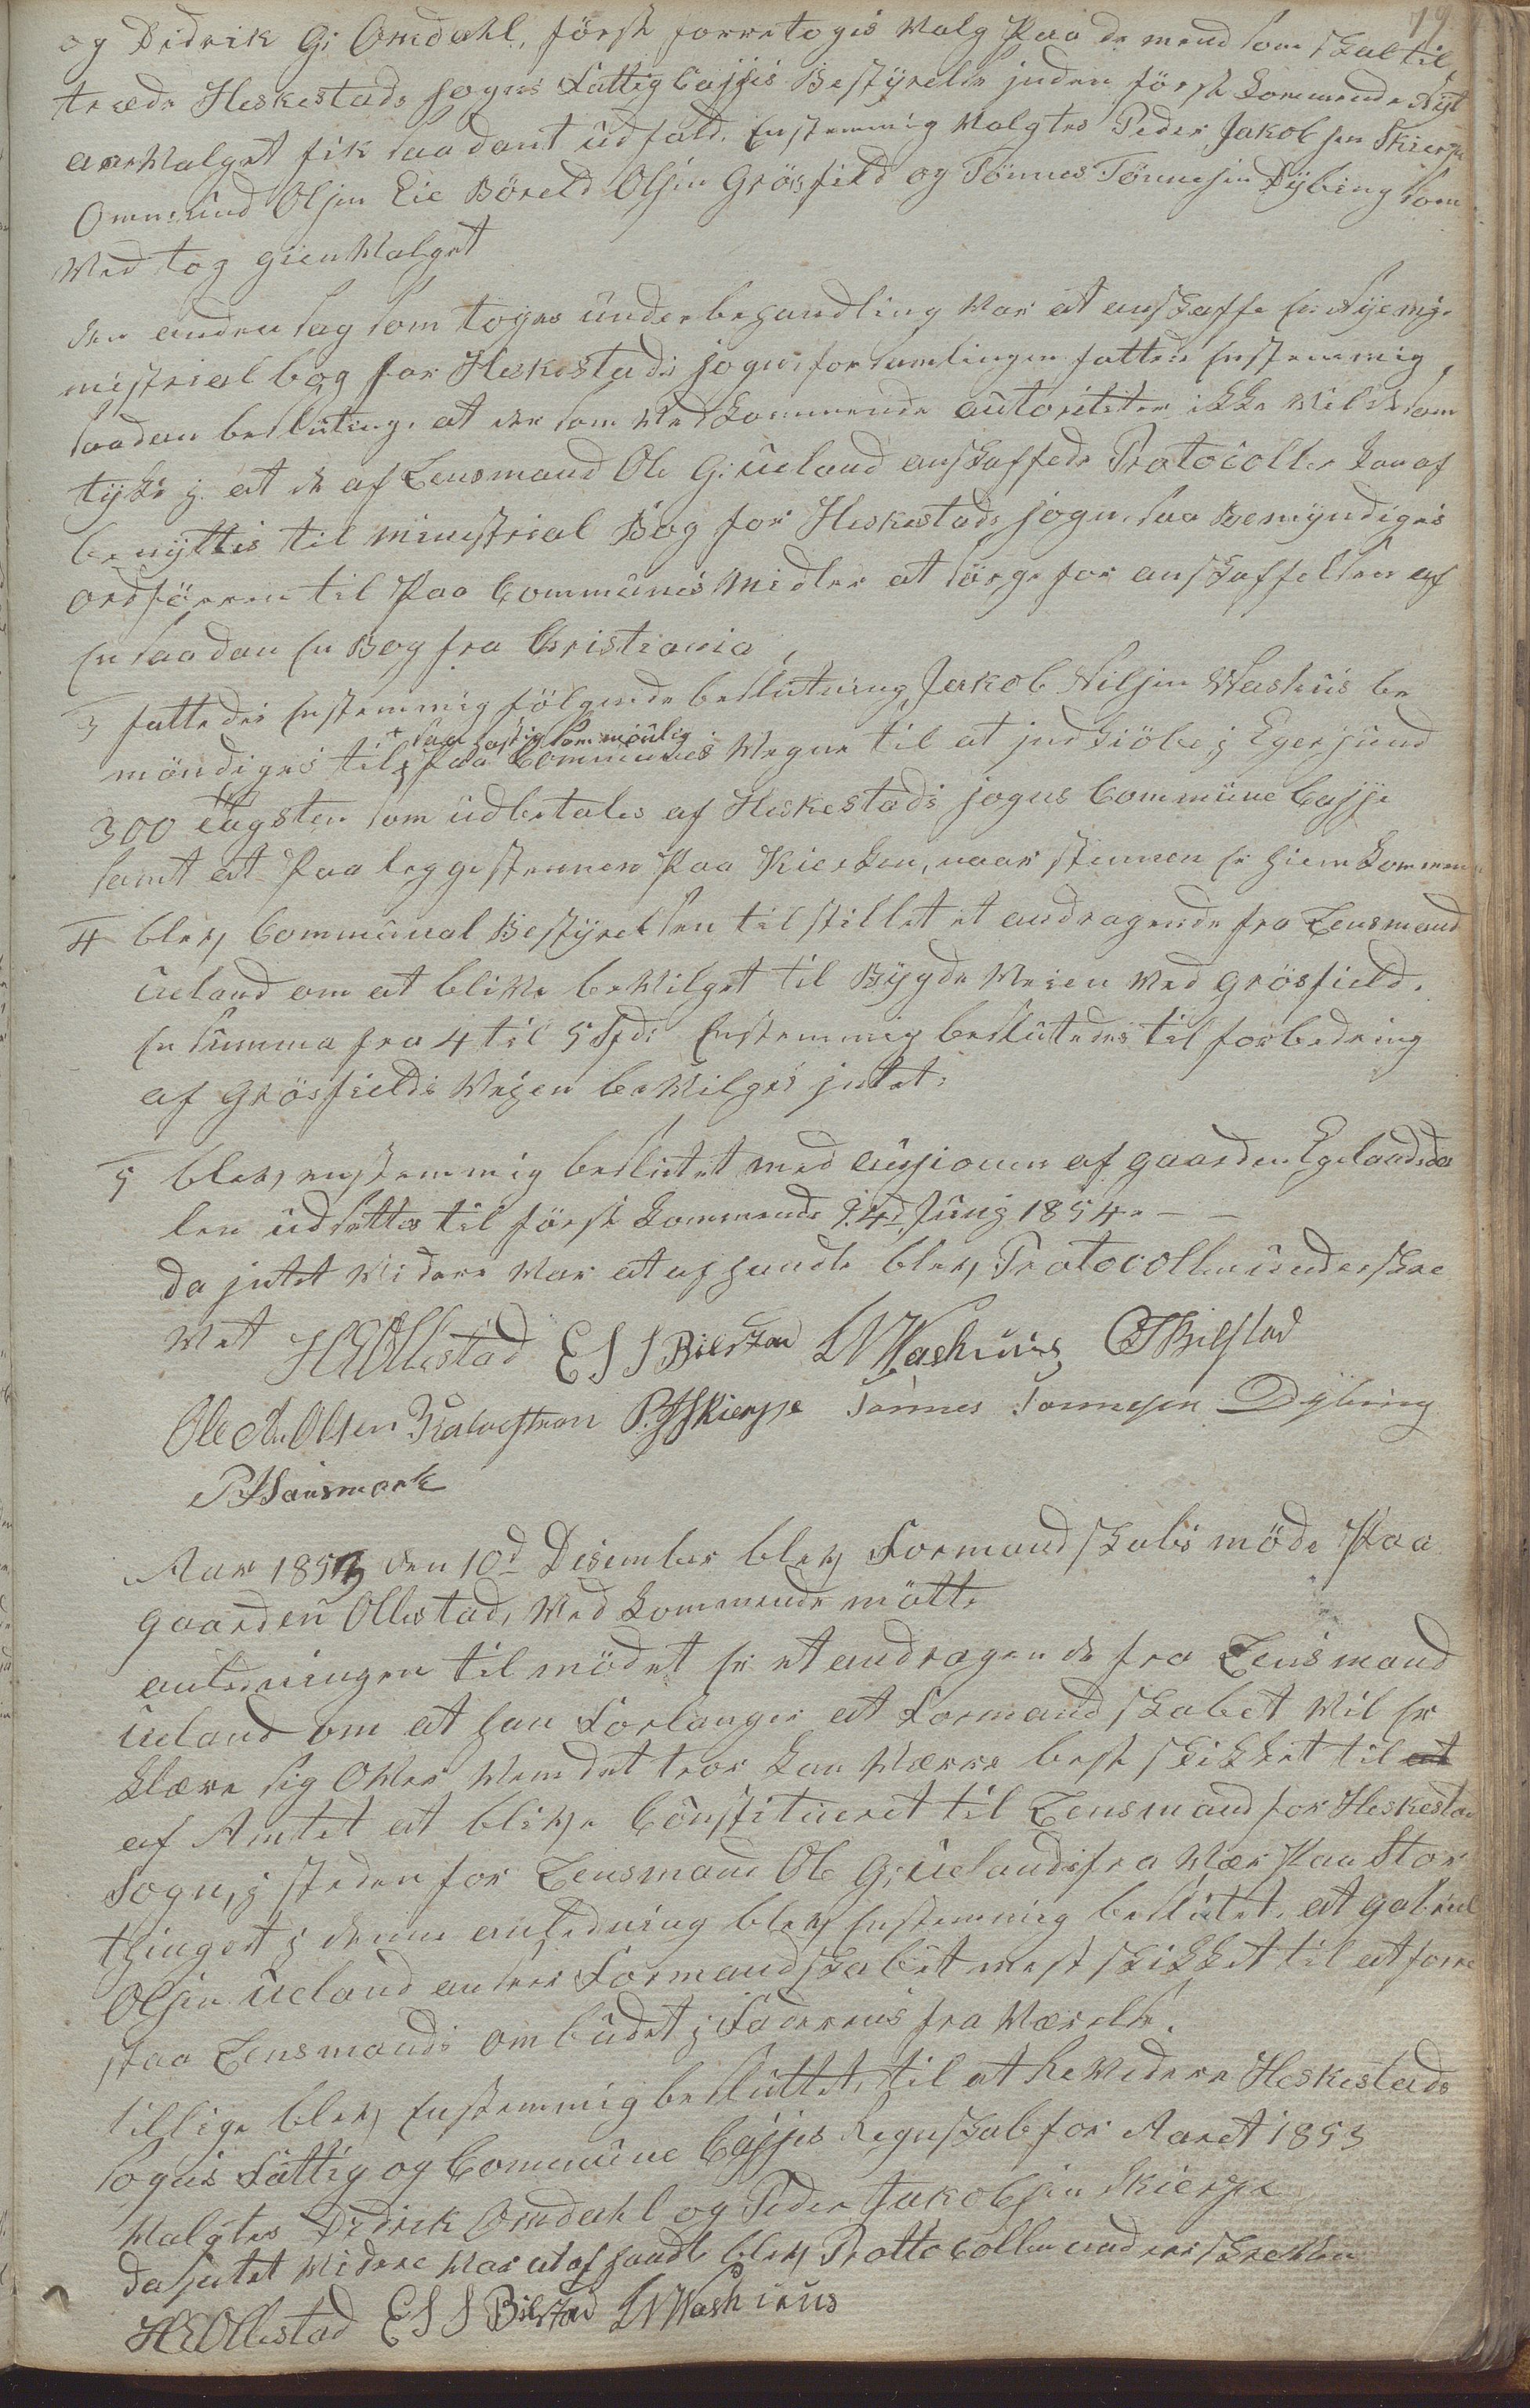 79
og Didrik G: Omdahl, först forretoges Valg Paa de mend som skal til
træde Heskestads sogns Fattig Casses Bestyrelse inden först kommende Nyt
aar Valget fik saadant udfald. Enstemmig Valgtes Peder Jakobsen Skierpe
Ommund Olsen Eie Böreld Olsen Grösfield og Tönnes Tönnesen Dybing som
Ved tog gien Valget
den anden sag som toges under behandling Var at anskaffe en Nye mi
nistrial bog for Heskestads sogn, forsamlingen fattede Enstemmig
saadan beslutning, at der som Vedkommende autoriteter ikke Vilde sam
tyke j. at de af Lensmand Ole G: Ueland anskaffede Protocoller kan af
benyttes til ministrial Bog for Heskestads sogn, saa Bemyndiges
ordföreren til Paa Communes Midler at sörge for anskaffelsen af
En saadan En Bog fra Christiania,
3 fattedes Enstemmig fölgende beslutning, Jakob Nilsen Washus be
+ saa hastig som moulig
möndiges til + Paa Communes Vegne til at indkiöbe j Egersund
300 tagsten som udbetales af Heskestads sogns Commune Casse
samt at Paa legge stennen Paa Kierken, naar stennen er hiem kommen
4 blev Communal Bestyrelsen til stillet et andragende fra Lensmand
Ueland om at blive beVilget til Bygde Veien Ved Grösfield.
En Summa fra 4 til 5 Spd: Enstemmig beslutedes til forbedring
af Grösfields Vejen beVilges intet.
5 blev enstemmig beslutet med ausionen af gaarden Egelandsda
len udsettes til först kommende 24d Junj 1854. — —
da intet Videre Var at afhandle blev Protocollen underskre
Vet HEOllestad ESSBilstad LNWashuus OTBilstad
Ole An Olsen Kalvestran PJSkierpe Tönnes Tönnesen Dybing
PHausmark
Aar 1853 den 10d Disember blev Formandskabs möde Paa
gaarden Ollestad, Ved kommende mötte
anledningen til mödet er et andragende fra Lensmand
Ueland om at han Forlanger at Formandskabet Vil er
klære sig Over Vem det tror kan Værre best skikket til at
af Amtet at blive Constitueret til Lensmand for Heskestad
Sogn, j steden for Lensmand Ole G: Uelands fra Vær Paa Stor
thinget j denne anledning blev Enstemmig beslutet, at gabriel
Olsen Ueland anseer Formandskabet mest skikket til at forre
staa Lensmands ombudet j Faderens fra Værelse.
tillige blev Enstemmig besluttet, til at ReVidere Heskestads
sogns Fattig og Commune Casses Regnskab for Aaret 1853
Valgtes Didrik Omdahl og Peder Jakobsen Skierpe
da intet Videre Var at afhandle blev Prottocollen underskreVen
HEOllestad ESSBilstad LNWashuus